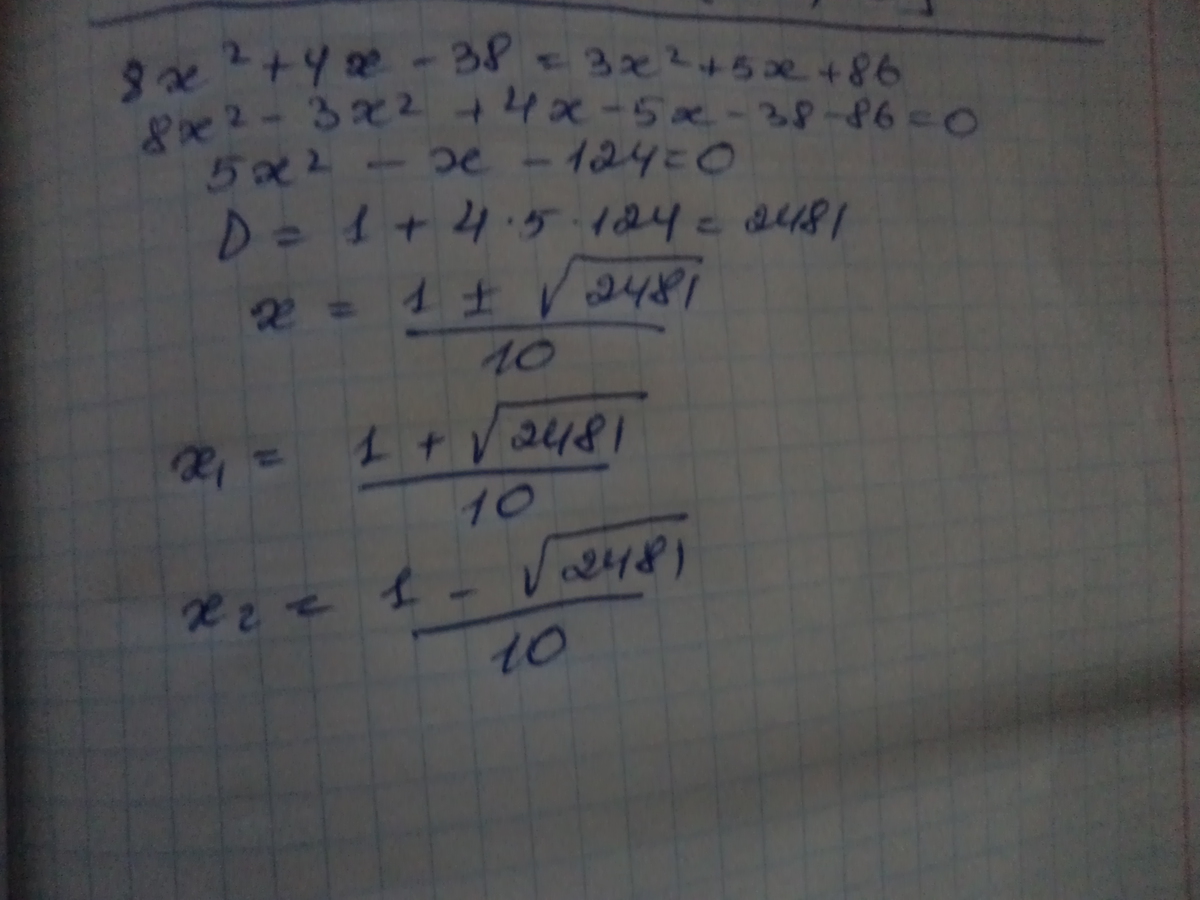 8x² + 4x - 38 = 3x² + 5x + 86
8x² - 3x² + 4x - 5x - 38 - 86 = 0
5x² - x - 124 = 0
D = 1 + 4 · 5 · 124 = 2481
x = (1 ± √2481) / 10
x₁ = (1 + √2481) / 10
x₂ = (1 - √2481) / 10